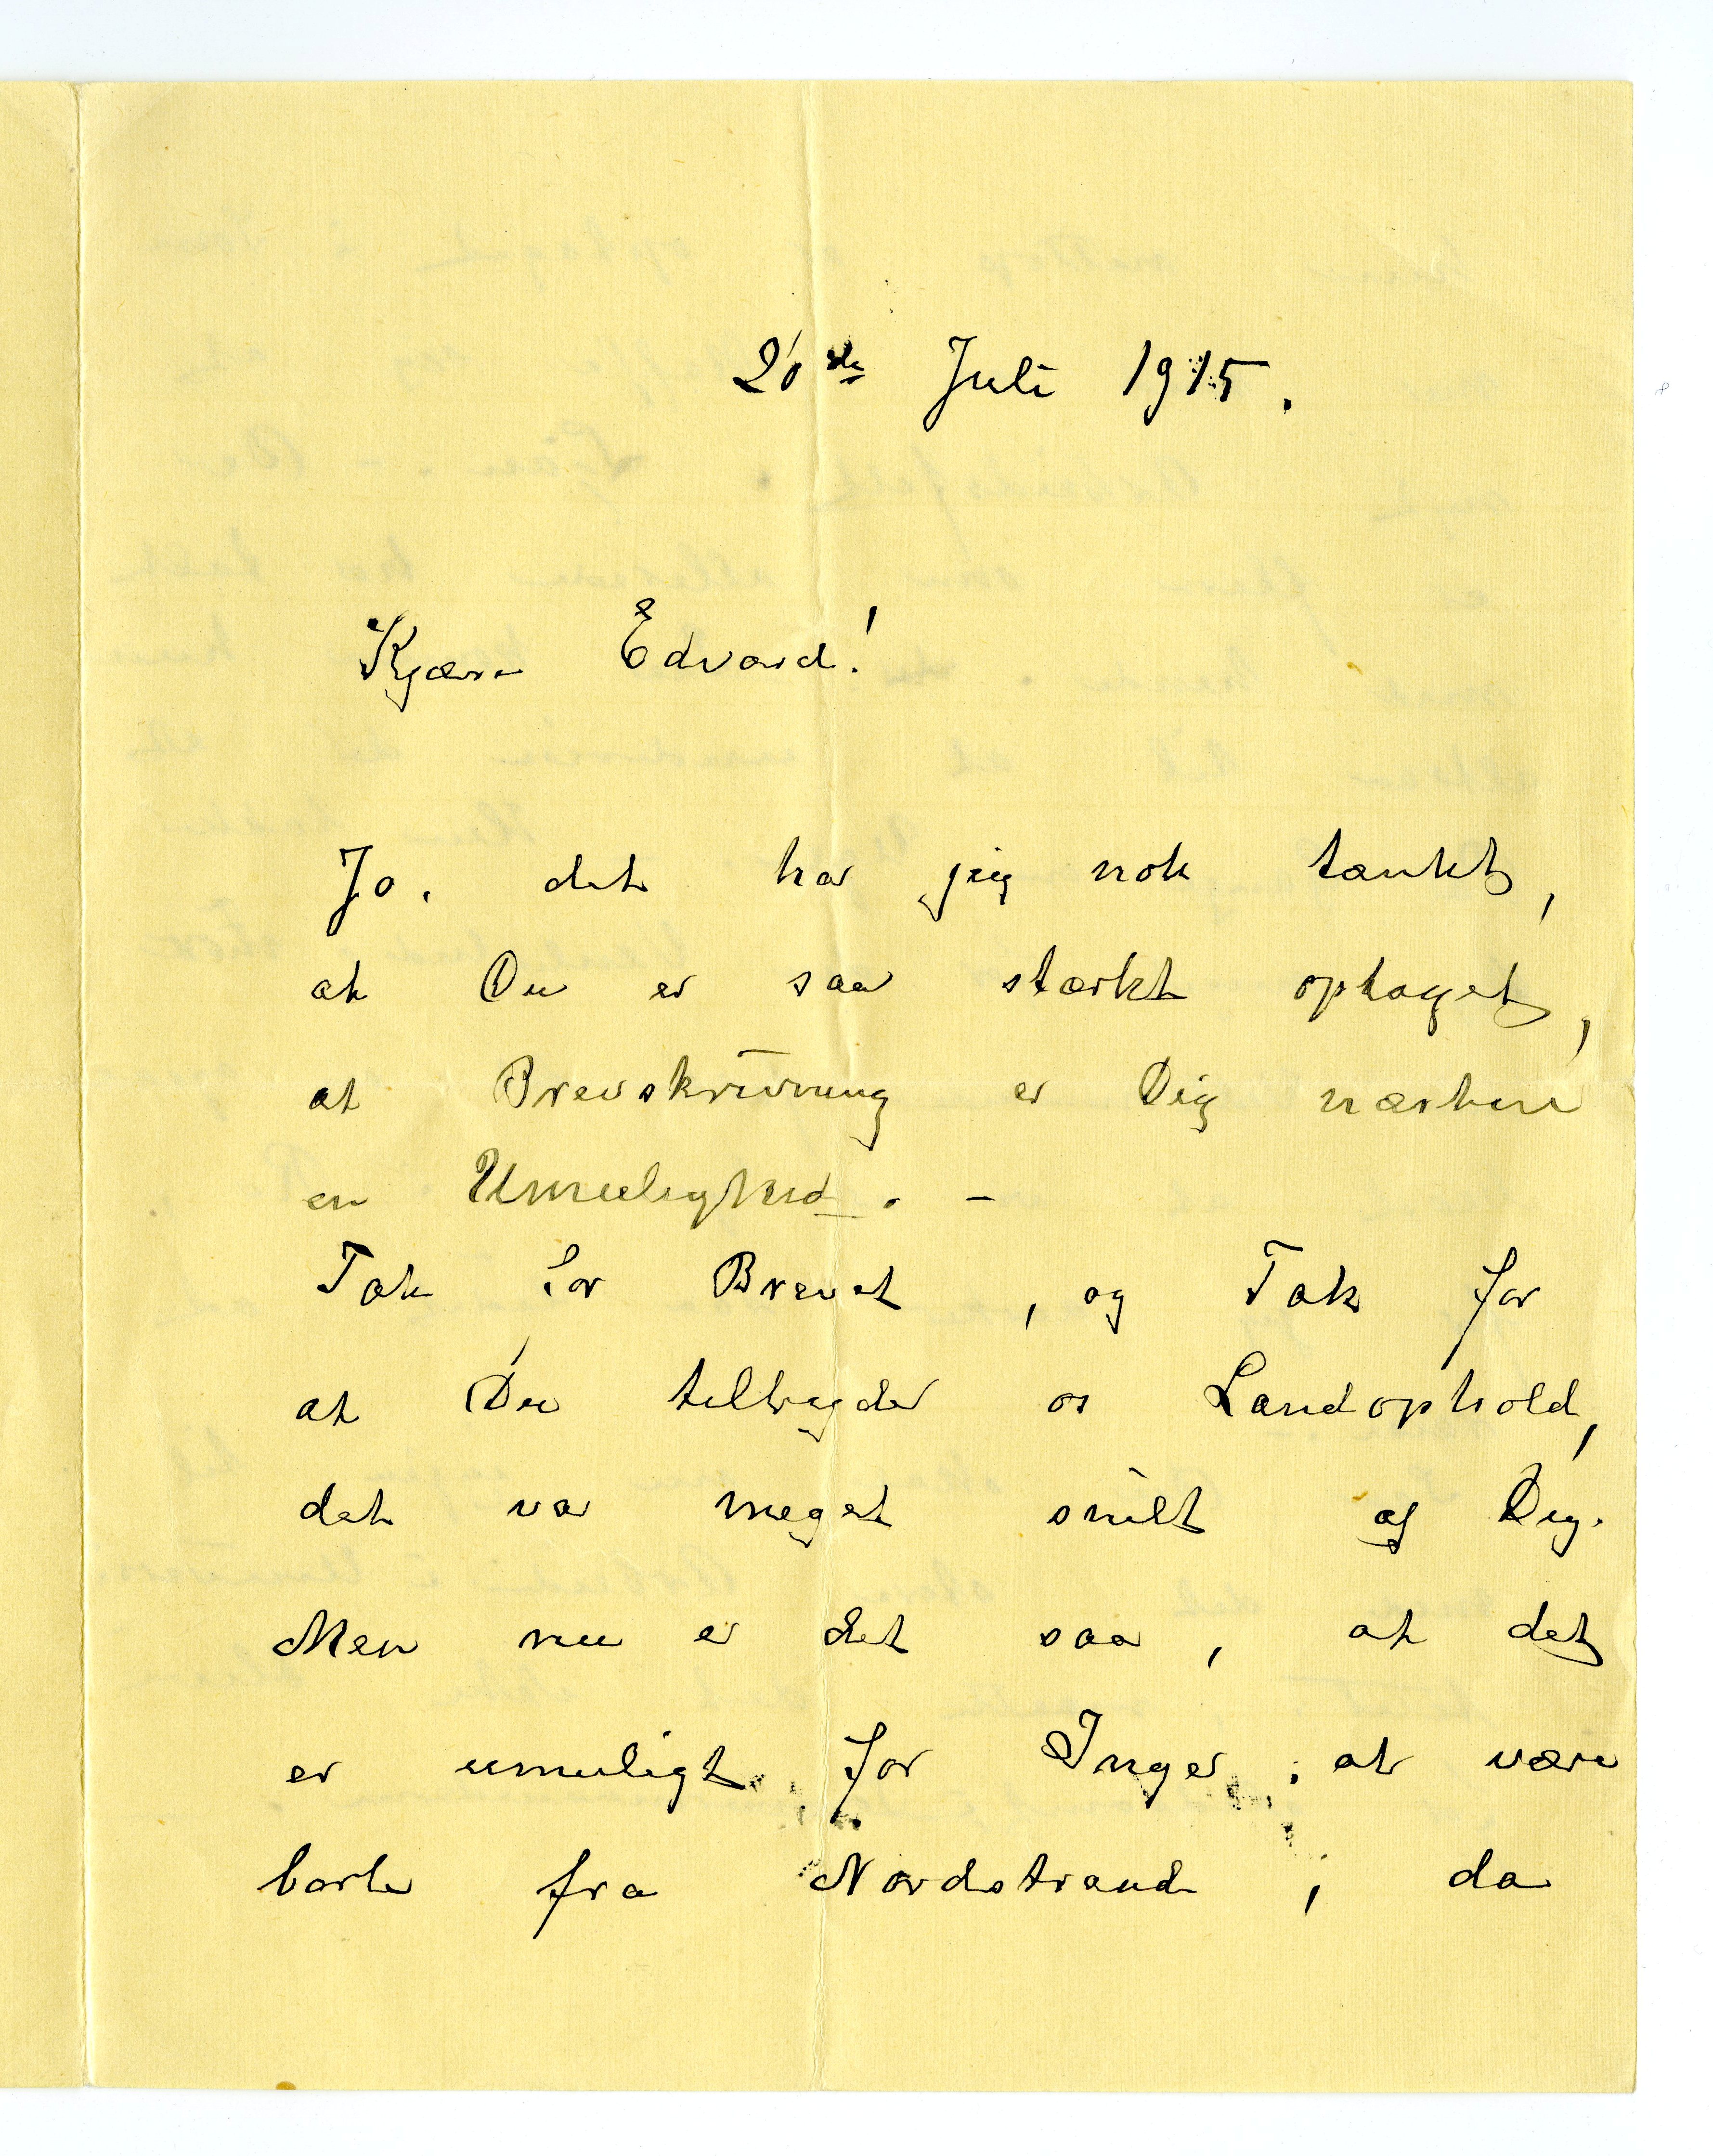 20de Juli 1915.
Kjære Edvard!
Ja, det har jeg nok tænkt,
at Du er saa stærkt optaget,
at Brevskrivning er Dig næsten
en Umulighed. –
Tak for Brevet, og Tak for
at Du tilbyder os Landophold,
det var meget snilt af Dig.
Men nu er det saa, at det
er umuligt for Inger, at være
borte fra Nordstrand, da